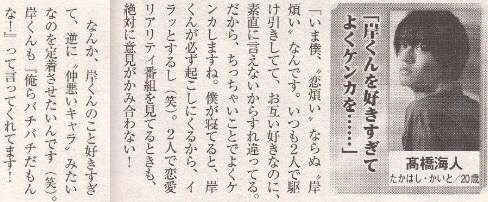 「岸くんを好きすぎて
よくケンカを……」
髙橋海人
たかはし・かいと/20歳
「いま僕、〝恋煩い〟ならぬ〝岸
煩い〟なんです。いつも2人で駆
け引きしてて、お互い好きなのに、
素直に言えないからすれ違ってる。
だから、ちっちゃいことでよくケ
ンカしますね。僕が寝てると、岸
くんが必ず起こしにくるから、イ
ラッとするし(笑)。2人で恋愛
リアリティ番組を見てるときも、
絶対に意見がかみ合わない!
なんか、岸くんのこと好きすぎ
て、逆に〝仲悪いキャラ〟みたい
なのを定着させたいんです(笑)。
岸くんも『俺らバチバチだもん
な!』って言ってくれてます!」